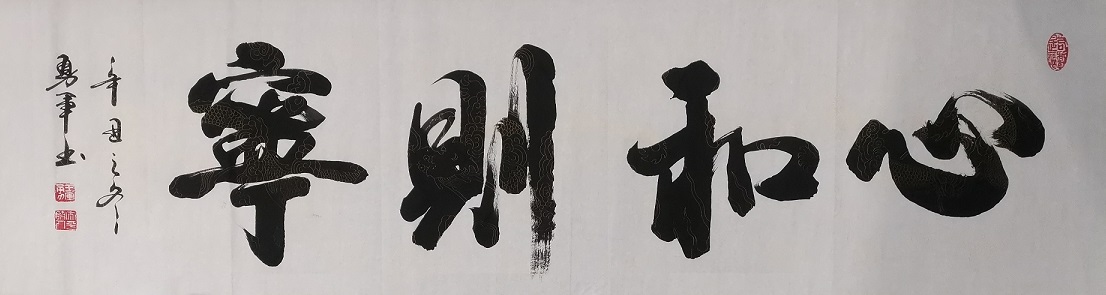 心和則寧
辛丑之冬
勇軍书